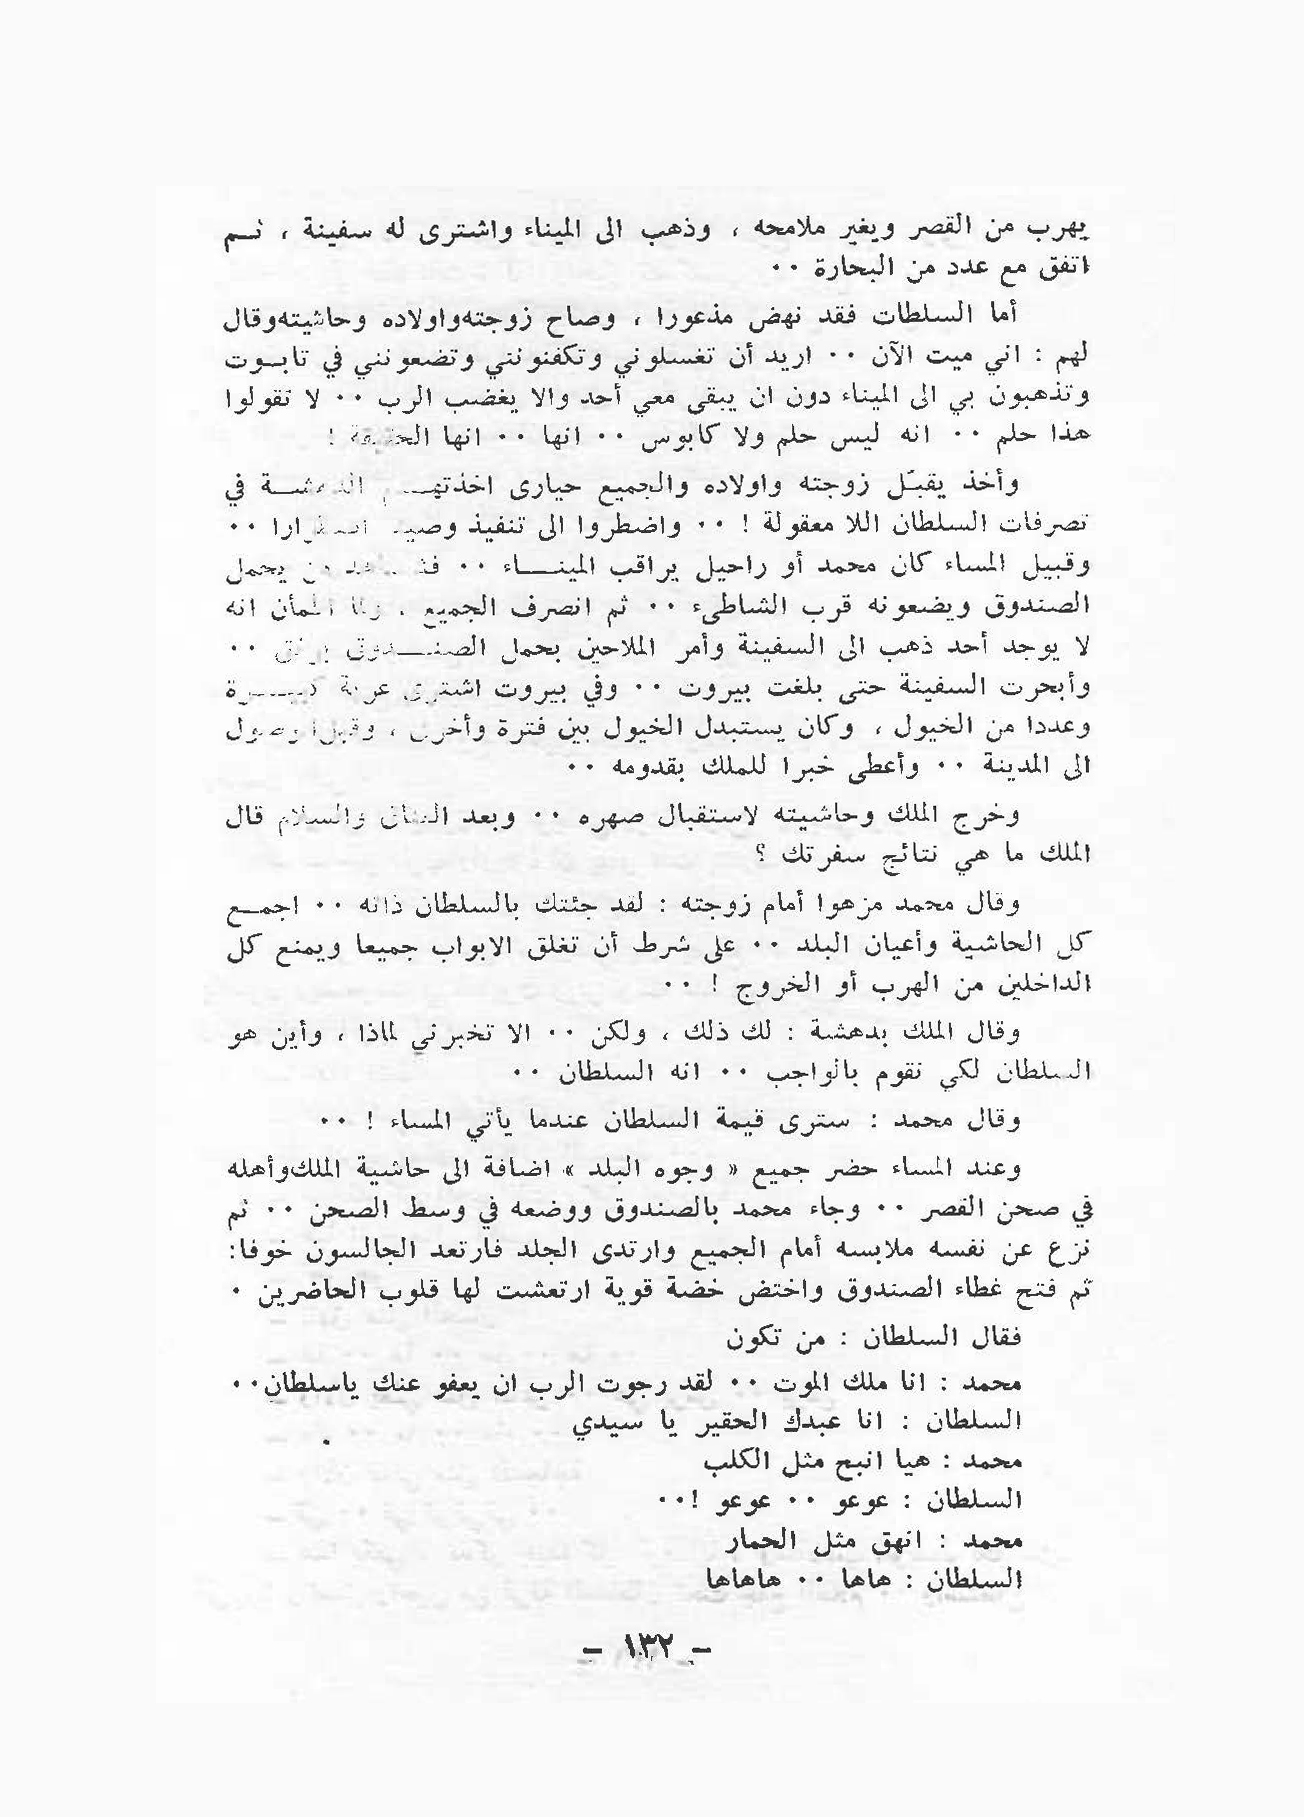 يهرب من القصر ويغير ملامحه ، وذهب الى الميناء واشترى له سفينة ، ثم
اتفق مع عدد من البحارة ٠٠
أما السلطات فقد نهض مذعورا ، وصاح زوجته واولاده وحاشيته وقال
لهم : اني ميت الآن ٠٠ اريد أن تغسلوني وتكفنونني وتضعونني في تابوت
وتذهبون بي الى الميناء دون ان يبقى معي أحد والا يغضب الرب ٠٠ لا تقولوا
هذا حلم ٠٠ انه ليس حلم ولا كابوس ٠٠ انها ٠٠ انها الحقيقة !
وأخذ يقبّل زوجته واولاده والجميع حيارى اخذتهم الدهشة في
تصرفات السلطان اللا معقولة ! ٠٠ واضطروا الى تنفيذ ٠٠
وقبيل المساء كان محمد أو راحيل يراقب الميناء ٠٠ من يحمل
الصندوق ويضعونه قرب الشاطىء ٠٠ ثم انصرف الجميع ، ولما اطمأن انه
لا يوجد أحد ذهب الى السفينة وأمر الملاحين بحمل الصندوق برفق ٠٠
وأبحرت السفينة حتى بلغت بيروت ٠٠ وفي بيروت اشترى عربة كبيرة
وعددا من الخيول ، وكان يستبدل الخيول بين فترة وأخرى ، وقبل الوصول
الى المدينة ٠٠ وأعطى خبرا للملك بقدومه ٠٠
وخرج الملك وحاشيته لاستقبال صهره ٠٠ وبعد العناق والسلام قال
الملك ما هي نتائج سفرتك ؟
وقال محمد مزهوا أمام زوجته : لقد جئتك بالسلطان ذاته ٠٠ اجمع
كل الحاشية وأعيان البلد ٠٠ على شرط أن تغلق الابواب جميعا ويمنع كل
الداخلين من الهرب أو الخروج ! ٠٠
وقال الملك بدهشة : لك ذلك ، ولكن ٠٠ الا تخبرني لماذا ، وأين هو
السلطان لكي نقوم بالواجب ٠٠ انه السلطان ٠٠
وقال محمد : سترى قيمة السلطان عندما يأتي المساء ! ٠٠
وعند المساء حضر جميع « وجوه البلد » اضافة الى حاشية الملك وأهله
في صحن القصر ٠٠ وجاء محمد بالصندوق ووضعه في وسط الصحن ٠٠ ثم
نزع عن نفسه ملابسه أمام الجميع وارتدى الجلد فارتعد الجالسون خوفا:
ثم فتح غطاء الصندوق واختض خضة قوية ارتعشت لها قلوب الحاضرين ٠
فقال السلطان : من تكون
محمد : انا ملك الموت ٠٠ لقد رجوت الرب ان يعفو عنك ياسلطان٠٠
السلطان : انا عبدك الحقير يا سيدي
محمد : هيا انبح مثل الكلب
السلطان : عوعو ٠٠ عوعو !٠٠
محمد : انهق مثل الحمار
السلطان : هاها ٠٠ هاهاها
– ١٣٢ –